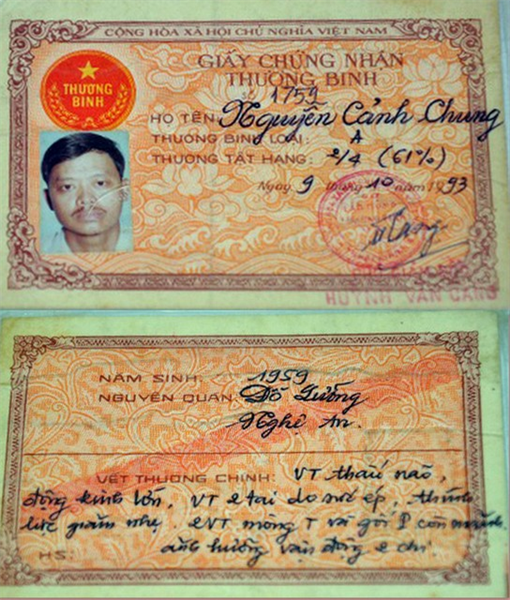 CỘNG HÒA XÃ HỘI CHỦ NGHĨA VIỆT NAM
GIẤY CHỨNG NHẬN
THƯƠNG BINH
THƯƠNG
BINH
Số 1759
HỌ TÊN Nguyễn Cảnh Chung
THƯƠNG BINH LOẠI: A
THƯƠNG TẬT HẠNG: 2/4 (61%)
Ngày 9 tháng 10 năm 1993
HUỲNH VĂN CANG
NĂM SINH: 1959
NGUYÊN QUÁN: Đô Lương
Nghệ An.
VẾT THƯƠNG CHÍNH: VT thấu não,
động kinh lớn, VT 2 tai do sức ép, thính
lực giảm nhẹ. 2VT mông T và gối P còn mảnh
HS: ảnh hưởng vận động 2 chi.